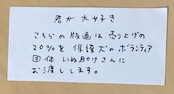 君が大好き
こちらの版画は売り上げの
20%を保護犬のボランティア
団体いぬ助けさんに
お渡しします。